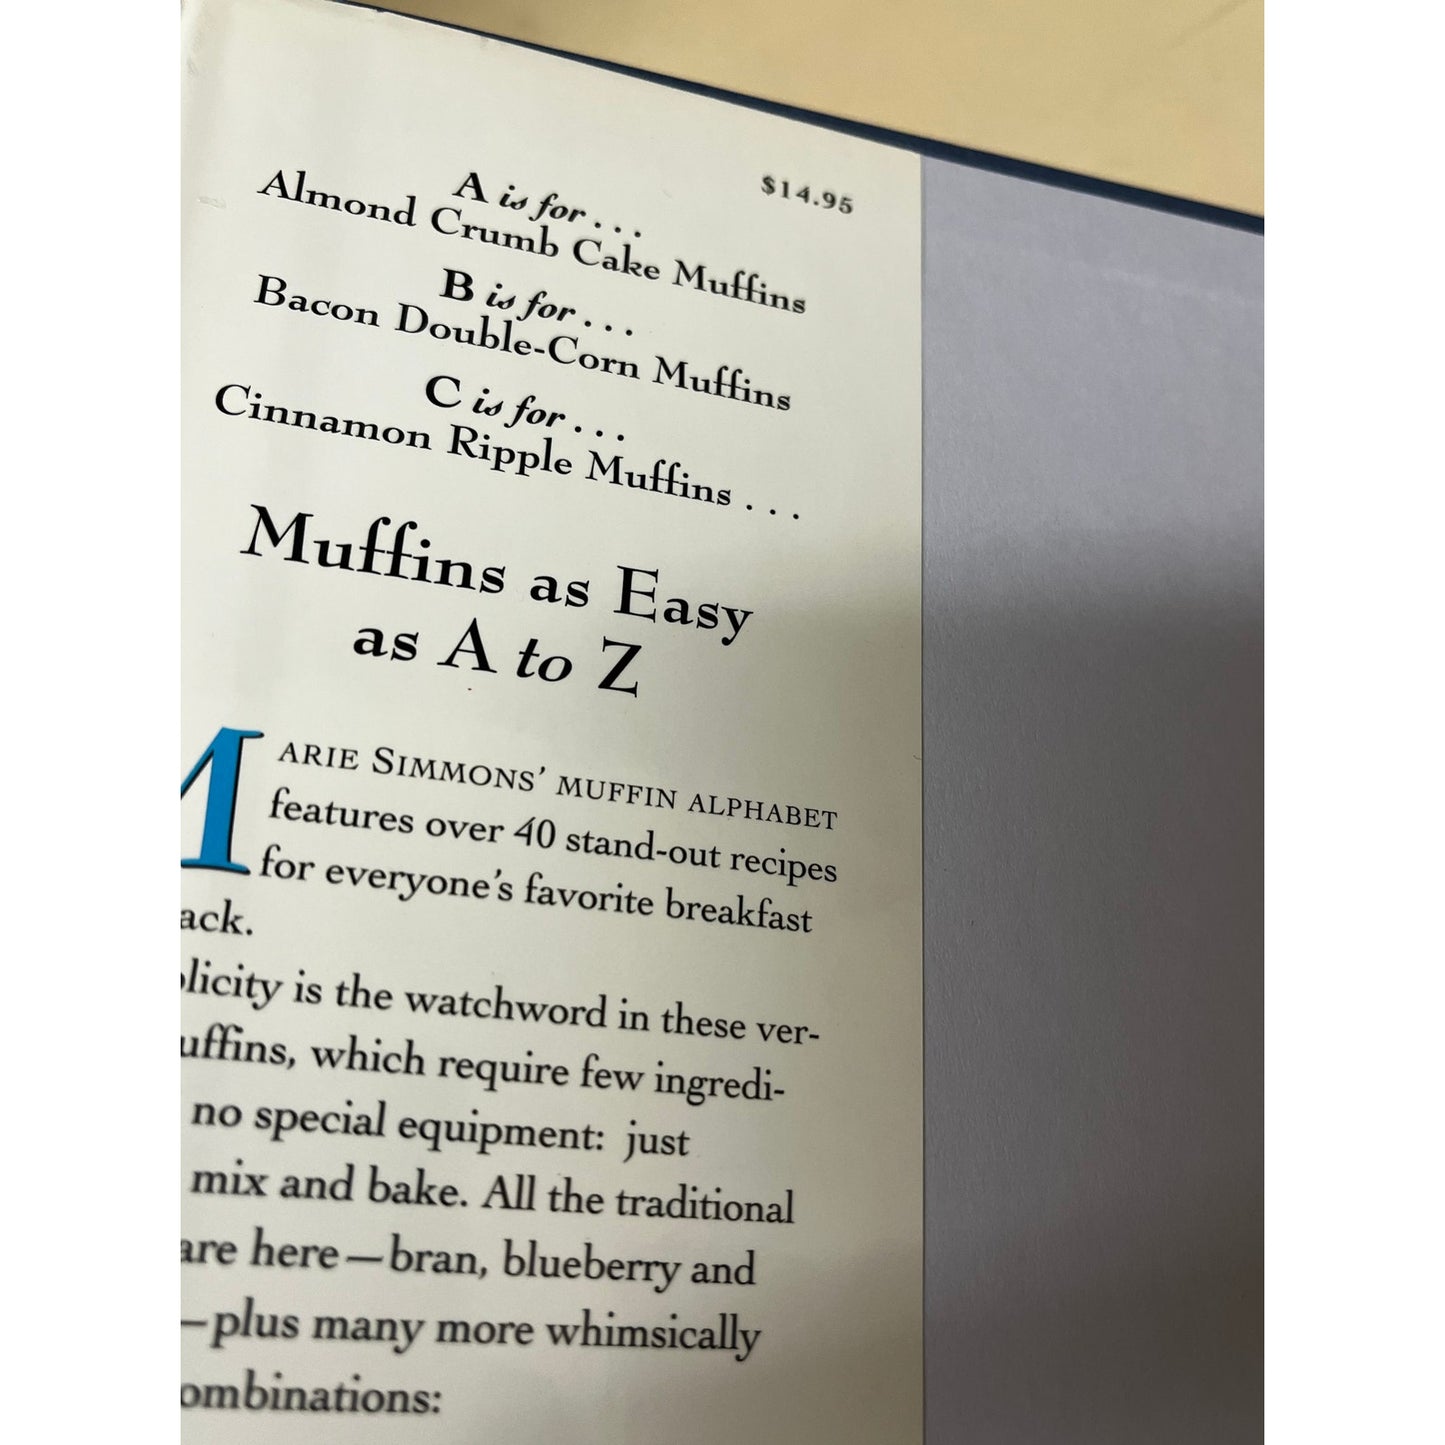 $14.95
A is for . . .
Almond Crumb Cake Muffins
B is for . . .
Bacon Double-Corn Muffins
C is for . . .
Cinnamon Ripple Muffins . . .
Muffins as Easy
as A to Z
MARIE SIMMONS' MUFFIN ALPHABET
features over 40 stand-out recipes
for everyone's favorite breakfast
ack.
licity is the watchword in these ver-
uffins, which require few ingredi-
no special equipment: just
mix and bake. All the traditional
are here—bran, blueberry and
—plus many more whimsically
ombinations: